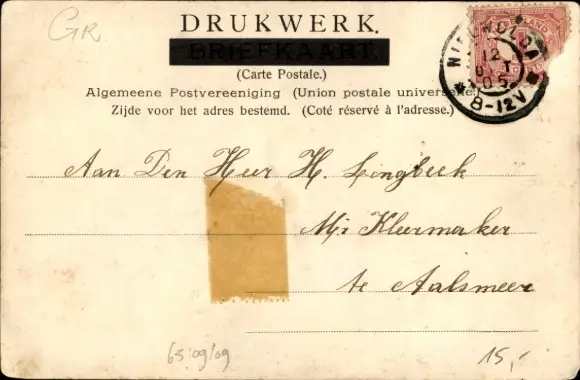 Gr.
DRUKWERK.
BRIEFKAART.
(Carte Postale.)
Algemeene Postvereeniging (Union postale universelle.)
Zijde voor het adres bestemd. (Coté réservé à l'adresse.)
NIEUWOLDA
12
05
8-12V
Aan Den Heer H. Lingbeek
Mr Kleermaker
te Aalsmeer
65:09/09
15,-